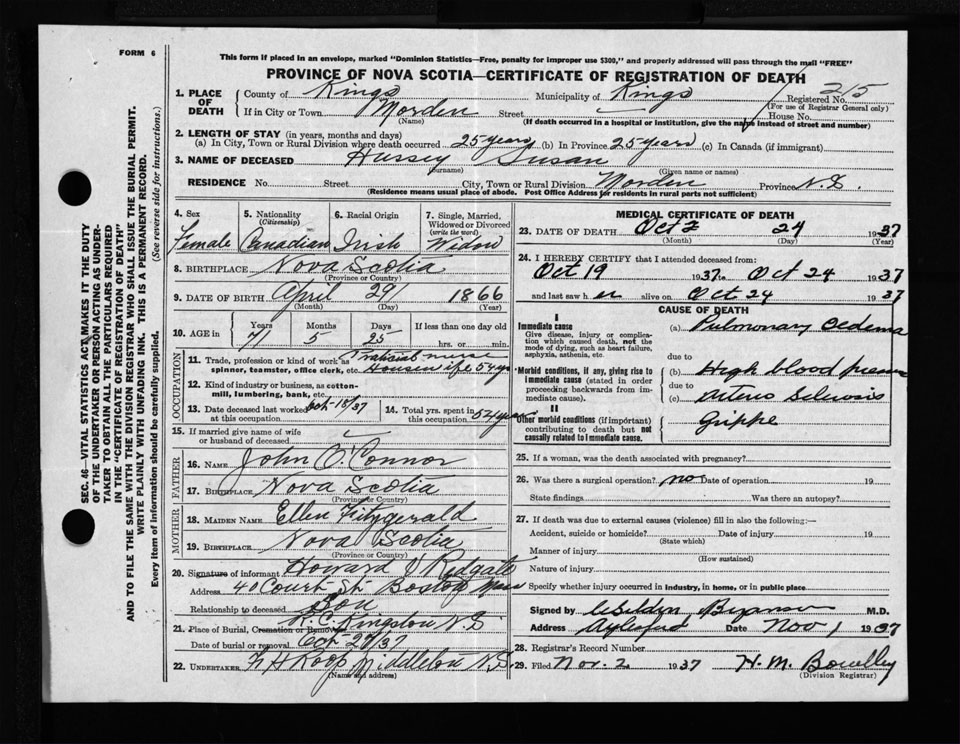 FORM 6
This form if placed in an envelope, marked "Dominion Statistics—Free, penalty for improper use $300," and properly addressed will pass through the mail "FREE"
PROVINCE OF NOVA SCOTIA—CERTIFICATE OF REGISTRATION OF DEATH
1. PLACE OF DEATH County of Kings Municipality of Kings Registered No. 215
(For use of Registrar General only)
If in City or Town Morden Street House No.
(Name) (If death occurred in a hospital or institution, give the name instead of street and number)
2. LENGTH OF STAY (in years, months and days)
(a) In City, Town or Rural Division where death occurred 25 years (b) In Province 25 years (c) In Canada (if immigrant)
3. NAME OF DECEASED Hursey Susan
(Surname) (Given name or names)
RESIDENCE No. Street City, Town or Rural Division Morden Province N.S.
(Residence means usual place of abode. Post Office Address for residents in rural parts not sufficient)
4. Sex 5. Nationality (Citizenship) 6. Racial Origin 7. Single, Married, Widowed or Divorced (write the word)
Female Canadian Irish Widow
8. BIRTHPLACE Nova Scotia
(Province or Country)
9. DATE OF BIRTH April 29 1866
(Month) (Day) (Year)
10. AGE in Years Months Days If less than one day old
71 5 25 hrs. or min.
OCCUPATION
11. Trade, profession or kind of work as spinner, teamster, office clerk, etc. Practical nurse Housewife
12. Kind of industry or business, as cotton-mill, lumbering, bank, etc.
13. Date deceased last worked at this occupation Oct 18/37 14. Total yrs. spent in this occupation 54 years
15. If married give name of wife or husband of deceased
FATHER
16. NAME John O'Connor
17. BIRTHPLACE Nova Scotia
(Province or Country)
MOTHER
18. MAIDEN NAME Ellen Fitzgerald
19. BIRTHPLACE Nova Scotia
(Province or Country)
20. Signature of informant Howard J
Address 40 Court St Boston Mass
Relationship to deceased Son
21. Place of Burial, Cremation or Removal R.C. Kingston N.S.
Date of burial or removal Oct 27/37
22. UNDERTAKER F H Roop Middleton N.S.
(Name and address)
MEDICAL CERTIFICATE OF DEATH
23. DATE OF DEATH Oct 24 1937
(Month) (Day) (Year)
24. I HEREBY CERTIFY that I attended deceased from:
Oct 19 1937 to Oct 24 1937
and last saw her alive on Oct 24 1937
CAUSE OF DEATH
I
Immediate cause
Give disease, injury or complication which caused death, not the mode of dying, such as heart failure, asphyxia, asthenia, etc.
(a) Pulmonary Oedema
due to
Morbid conditions, if any, giving rise to immediate cause (stated in order proceeding backwards from immediate cause).
(b) High blood pressure
due to
(c) Arterio Sclerosis
II
Other morbid conditions (if important) contributing to death but not causally related to immediate cause.
Grippe
25. If a woman, was the death associated with pregnancy?
26. Was there a surgical operation? no Date of operation 19
State findings Was there an autopsy?
27. If death was due to external causes (violence) fill in also the following:—
Accident, suicide or homicide? Date of injury 19
(State which)
Manner of injury
(How sustained)
Nature of injury
Specify whether injury occurred in industry, in home, or in public place
Signed by M.D.
Address Aylesford Date Nov 1 1937
28. Registrar's Record Number
29. Filed Nov. 2 1937 H. M.
(Division Registrar)
SEC. 46—VITAL STATISTICS ACT MAKES IT THE DUTY
OF THE UNDERTAKER OR PERSON ACTING AS UNDER-
TAKER TO OBTAIN ALL THE PARTICULARS REQUIRED
IN THE "CERTIFICATE OF REGISTRATION OF DEATH"
AND TO FILE THE SAME WITH THE DIVISION REGISTRAR WHO SHALL ISSUE THE BURIAL PERMIT.
WRITE PLAINLY WITH UNFADING INK. THIS IS A PERMANENT RECORD.
Every item of information should be carefully supplied. (See reverse side for instructions.)